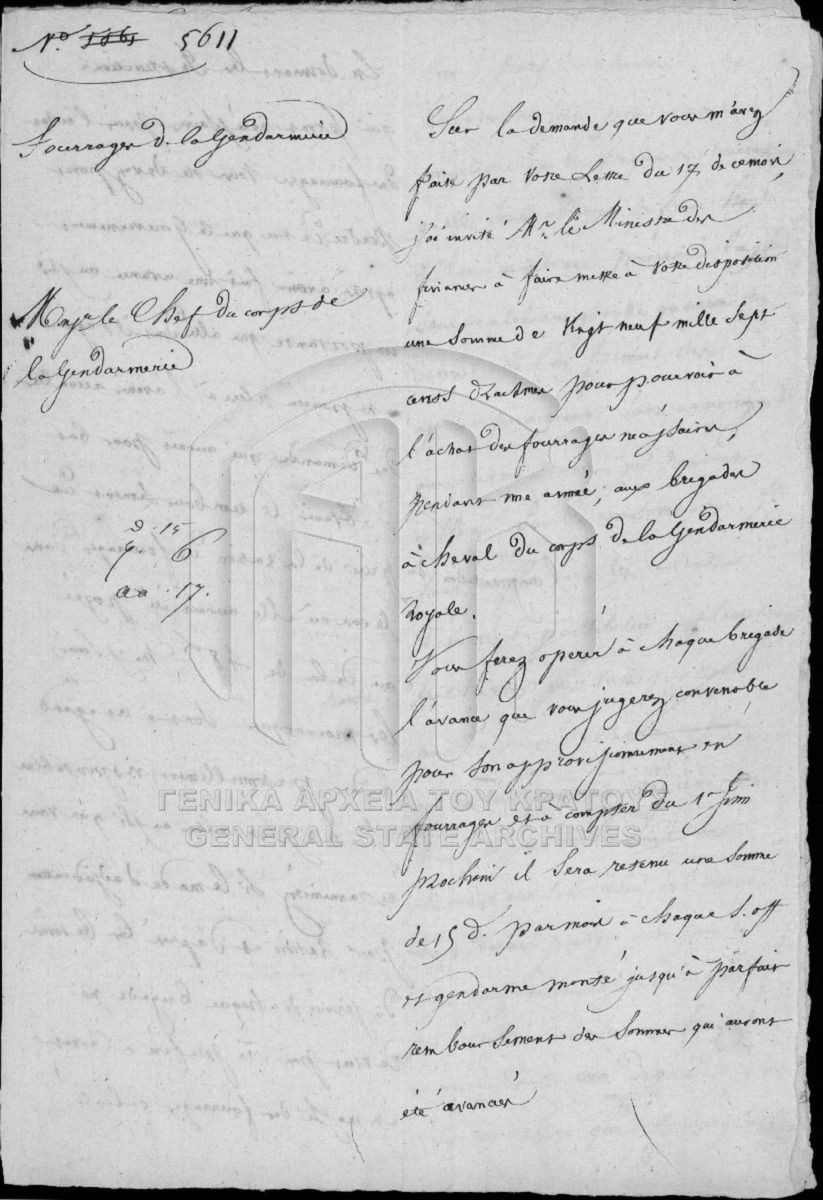 No. 5161 5611
Fourrages de la Gendarmerie
Monsr le Chef du corps de
la Gendarmerie
15
6
aa. 17.
Sur la demande que vous m'avez
faite par votre Lettre du 17 de ce mois,
j'ai invité Mr. le Ministre des
finances à faire mettre à votre disposition
une somme de Vingt neuf mille sept
cents drachmes pour pourvoir à
l'achat des fourrages nécessaires,
pendant une année, aux brigades
à cheval du corps de la Gendarmerie
Royale.
Vous ferez opérer à chaque brigade
l'avance que vous jugerez convenable
pour son approvisionnement en
fourrages et à compter du 1er Juin
prochain il sera retenu une somme
de 15 d. par mois à chaque S. off
et gendarme monté jusqu'à parfait
remboursement des sommes qui auront
été avancées
ΓΕΝΙΚΑ ΑΡΧΕΙΑ ΤΟΥ ΚΡΑΤΟΥΣ
GENERAL STATE ARCHIVES